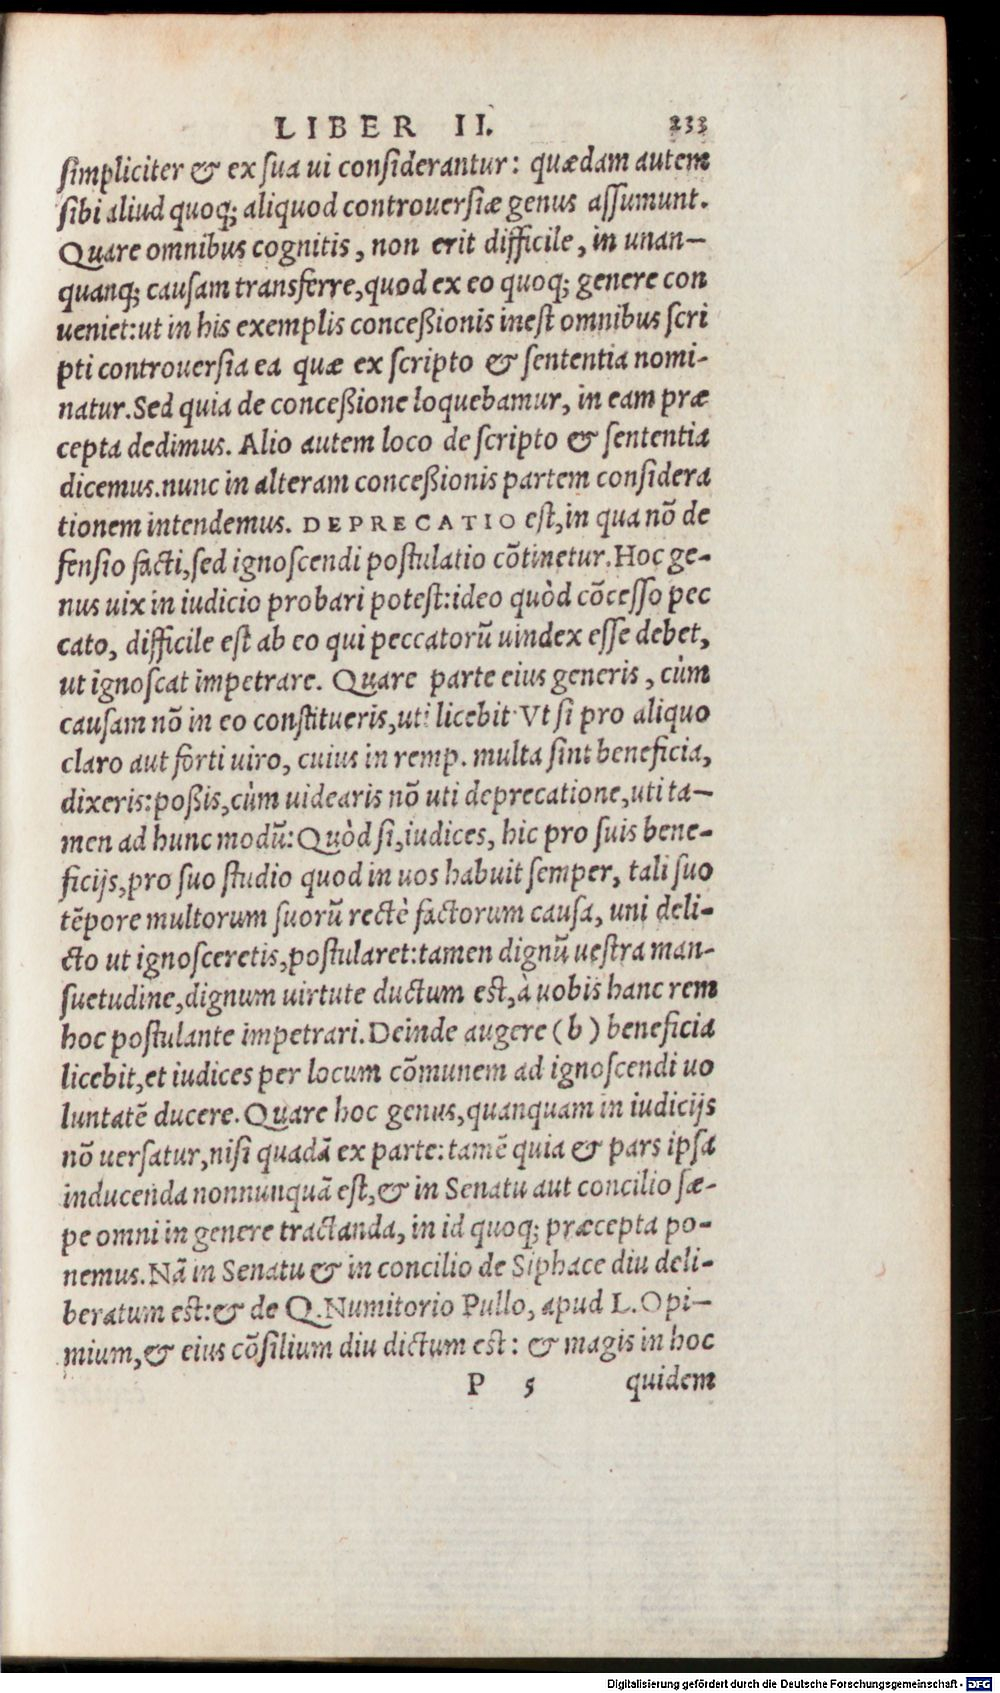 LIBER II. 233
simpliciter & ex sua ui considerantur: quædam autem
sibi aliud quoq; aliquod controuersiæ genus assumunt.
Quare omnibus cognitis, non erit difficile, in unan-
quanq; causam transferre, quod ex eo quoq; genere con
ueniet: ut in his exemplis conceßionis inest omnibus scri
pti controuersia ea quæ ex scripto & sententia nomi-
natur. Sed quia de conceßione loquebamur, in eam præ
cepta dedimus. Alio autem loco de scripto & sententia
dicemus. nunc in alteram conceßionis partem considera
tionem intendemus. DEPRECATIO est, in qua nõ de
fensio facti, sed ignoscendi postulatio cõtinetur. Hoc ge-
nus uix in iudicio probari potest: ideo quòd cõcesso pec
cato, difficile est ab eo qui peccatorũ uindex esse debet,
ut ignoscat impetrare. Quare parte eius generis, cùm
causam nõ in eo constitueris, uti licebit. Vt si pro aliquo
claro aut forti uiro, cuius in remp. multa sint beneficia,
dixeris: poßis, cùm uidearis nõ uti deprecatione, uti ta-
men ad hunc modũ: Quòd si, iudices, hic pro suis bene-
ficijs, pro suo studio quod in uos habuit semper, tali suo
tẽpore multorum suorũ rectè factorum causa, uni deli-
cto ut ignosceretis, postularet: tamen dignũ uestra man-
suetudine, dignum uirtute ductum est, à uobis hanc rem
hoc postulante impetrari. Deinde augere (b) beneficia
licebit, et iudices per locum cõmunem ad ignoscendi uo
luntatẽ ducere. Quare hoc genus, quanquam in iudicijs
nõ uersatur, nisi quadã ex parte: tamẽ quia & pars ipsa
inducenda nonnunquã est, & in Senatu aut concilio sæ-
pe omni in genere tractanda, in id quoq; præcepta po-
nemus. Nã in Senatu & in concilio de Siphace diu deli-
beratum est: & de Q. Numitorio Pullo, apud L. Opi-
mium, & eius cõsilium diu dictum est: & magis in hoc
P 5 quidem
Digitalisierung gefördert durch die Deutsche Forschungsgemeinschaft - DFG